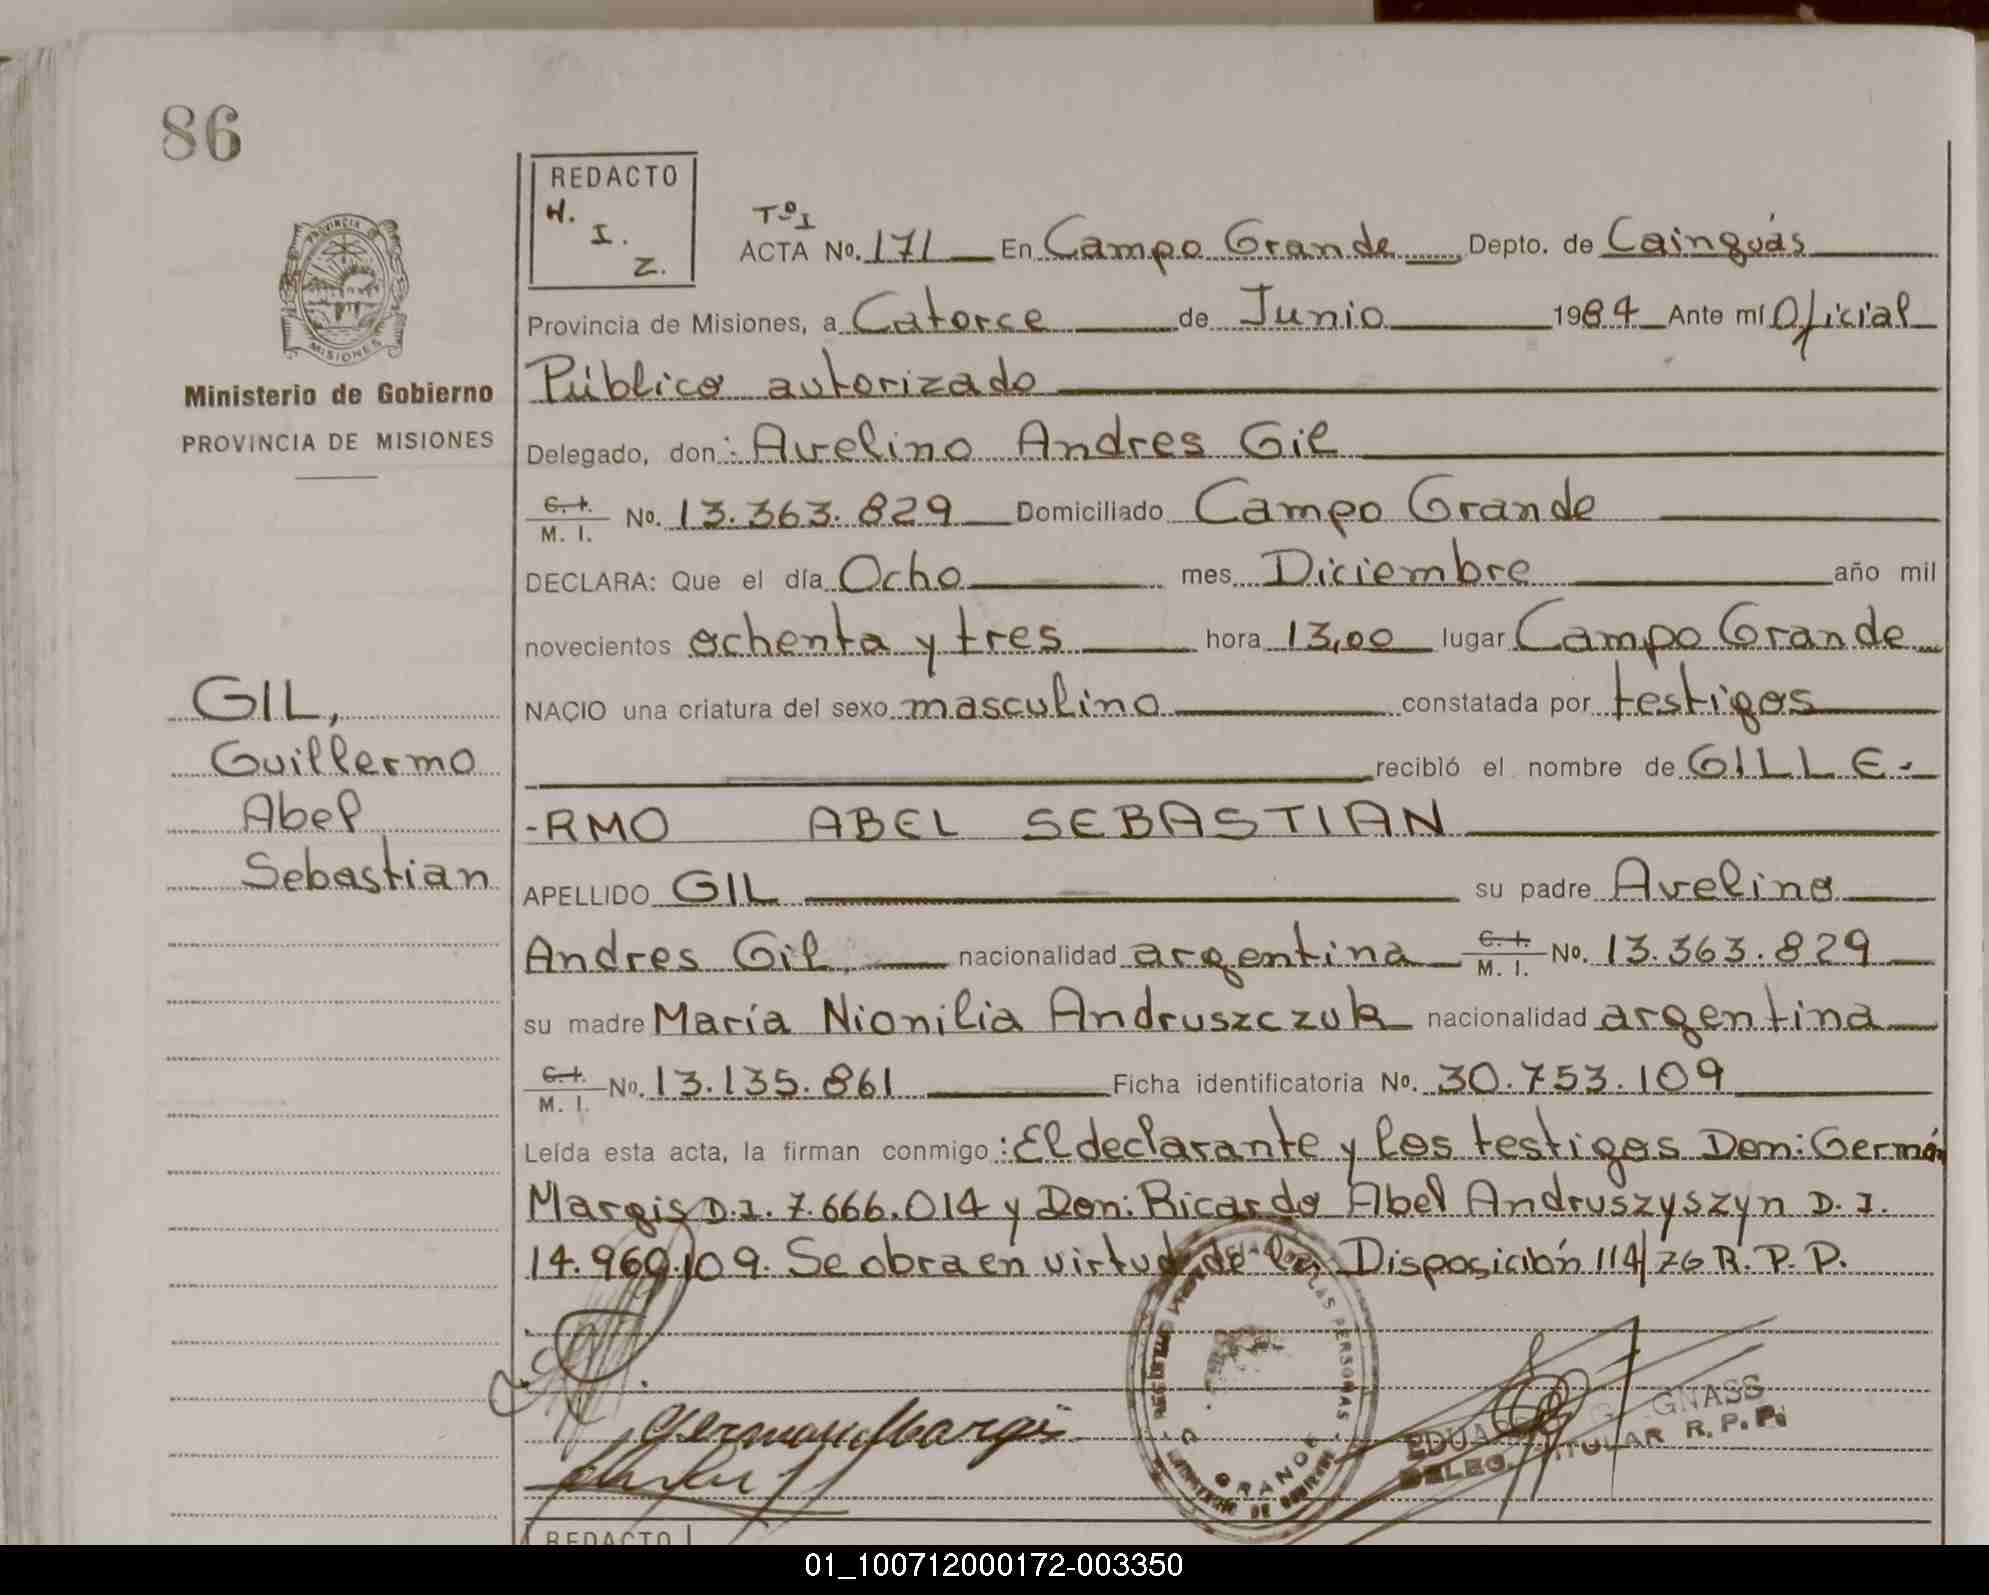 86
REDACTO
H.
I.
Z.
PROVINCIA DE
MISIONES
Ministerio de Gobierno
PROVINCIA DE MISIONES
GIL,
Guillermo
Abel
Sebastian
Tº I
ACTA No. 171 En Campo Grande Depto. de Cainguás
Provincia de Misiones, a Catorce de Junio 1984 Ante mí Oficial
Público autorizado
Delegado, don: Avelino Andres Gil
C. I. M. I. No. 13.363.829 Domiciliado Campo Grande
DECLARA: Que el día Ocho mes Diciembre año mil
novecientos ochenta y tres hora 13,00 lugar Campo Grande
NACIO una criatura del sexo masculino constatada por testigos
recibió el nombre de GILLE-
-RMO ABEL SEBASTIAN
APELLIDO GIL su padre Avelino
Andres Gil, nacionalidad argentina C. I. M. I. No. 13.363.829
su madre María Nionilia Andruszczuk nacionalidad argentina
C. I. M. I. No. 13.135.861 Ficha identificatoria No. 30.753.109
Leída esta acta, la firman conmigo: El declarante y los testigos Don: Germán
Margis D.I. 7.666.014 y Don: Ricardo Abel Andruszyszyn D. I.
14.969.109. Se obra en virtud de la Disposición 114/76 R. P. P.
German Margis
PERSONAS
GRANDE
GNASS
DELEG. TITULAR R. P. P.
REDACTO
01_100712000172-003350